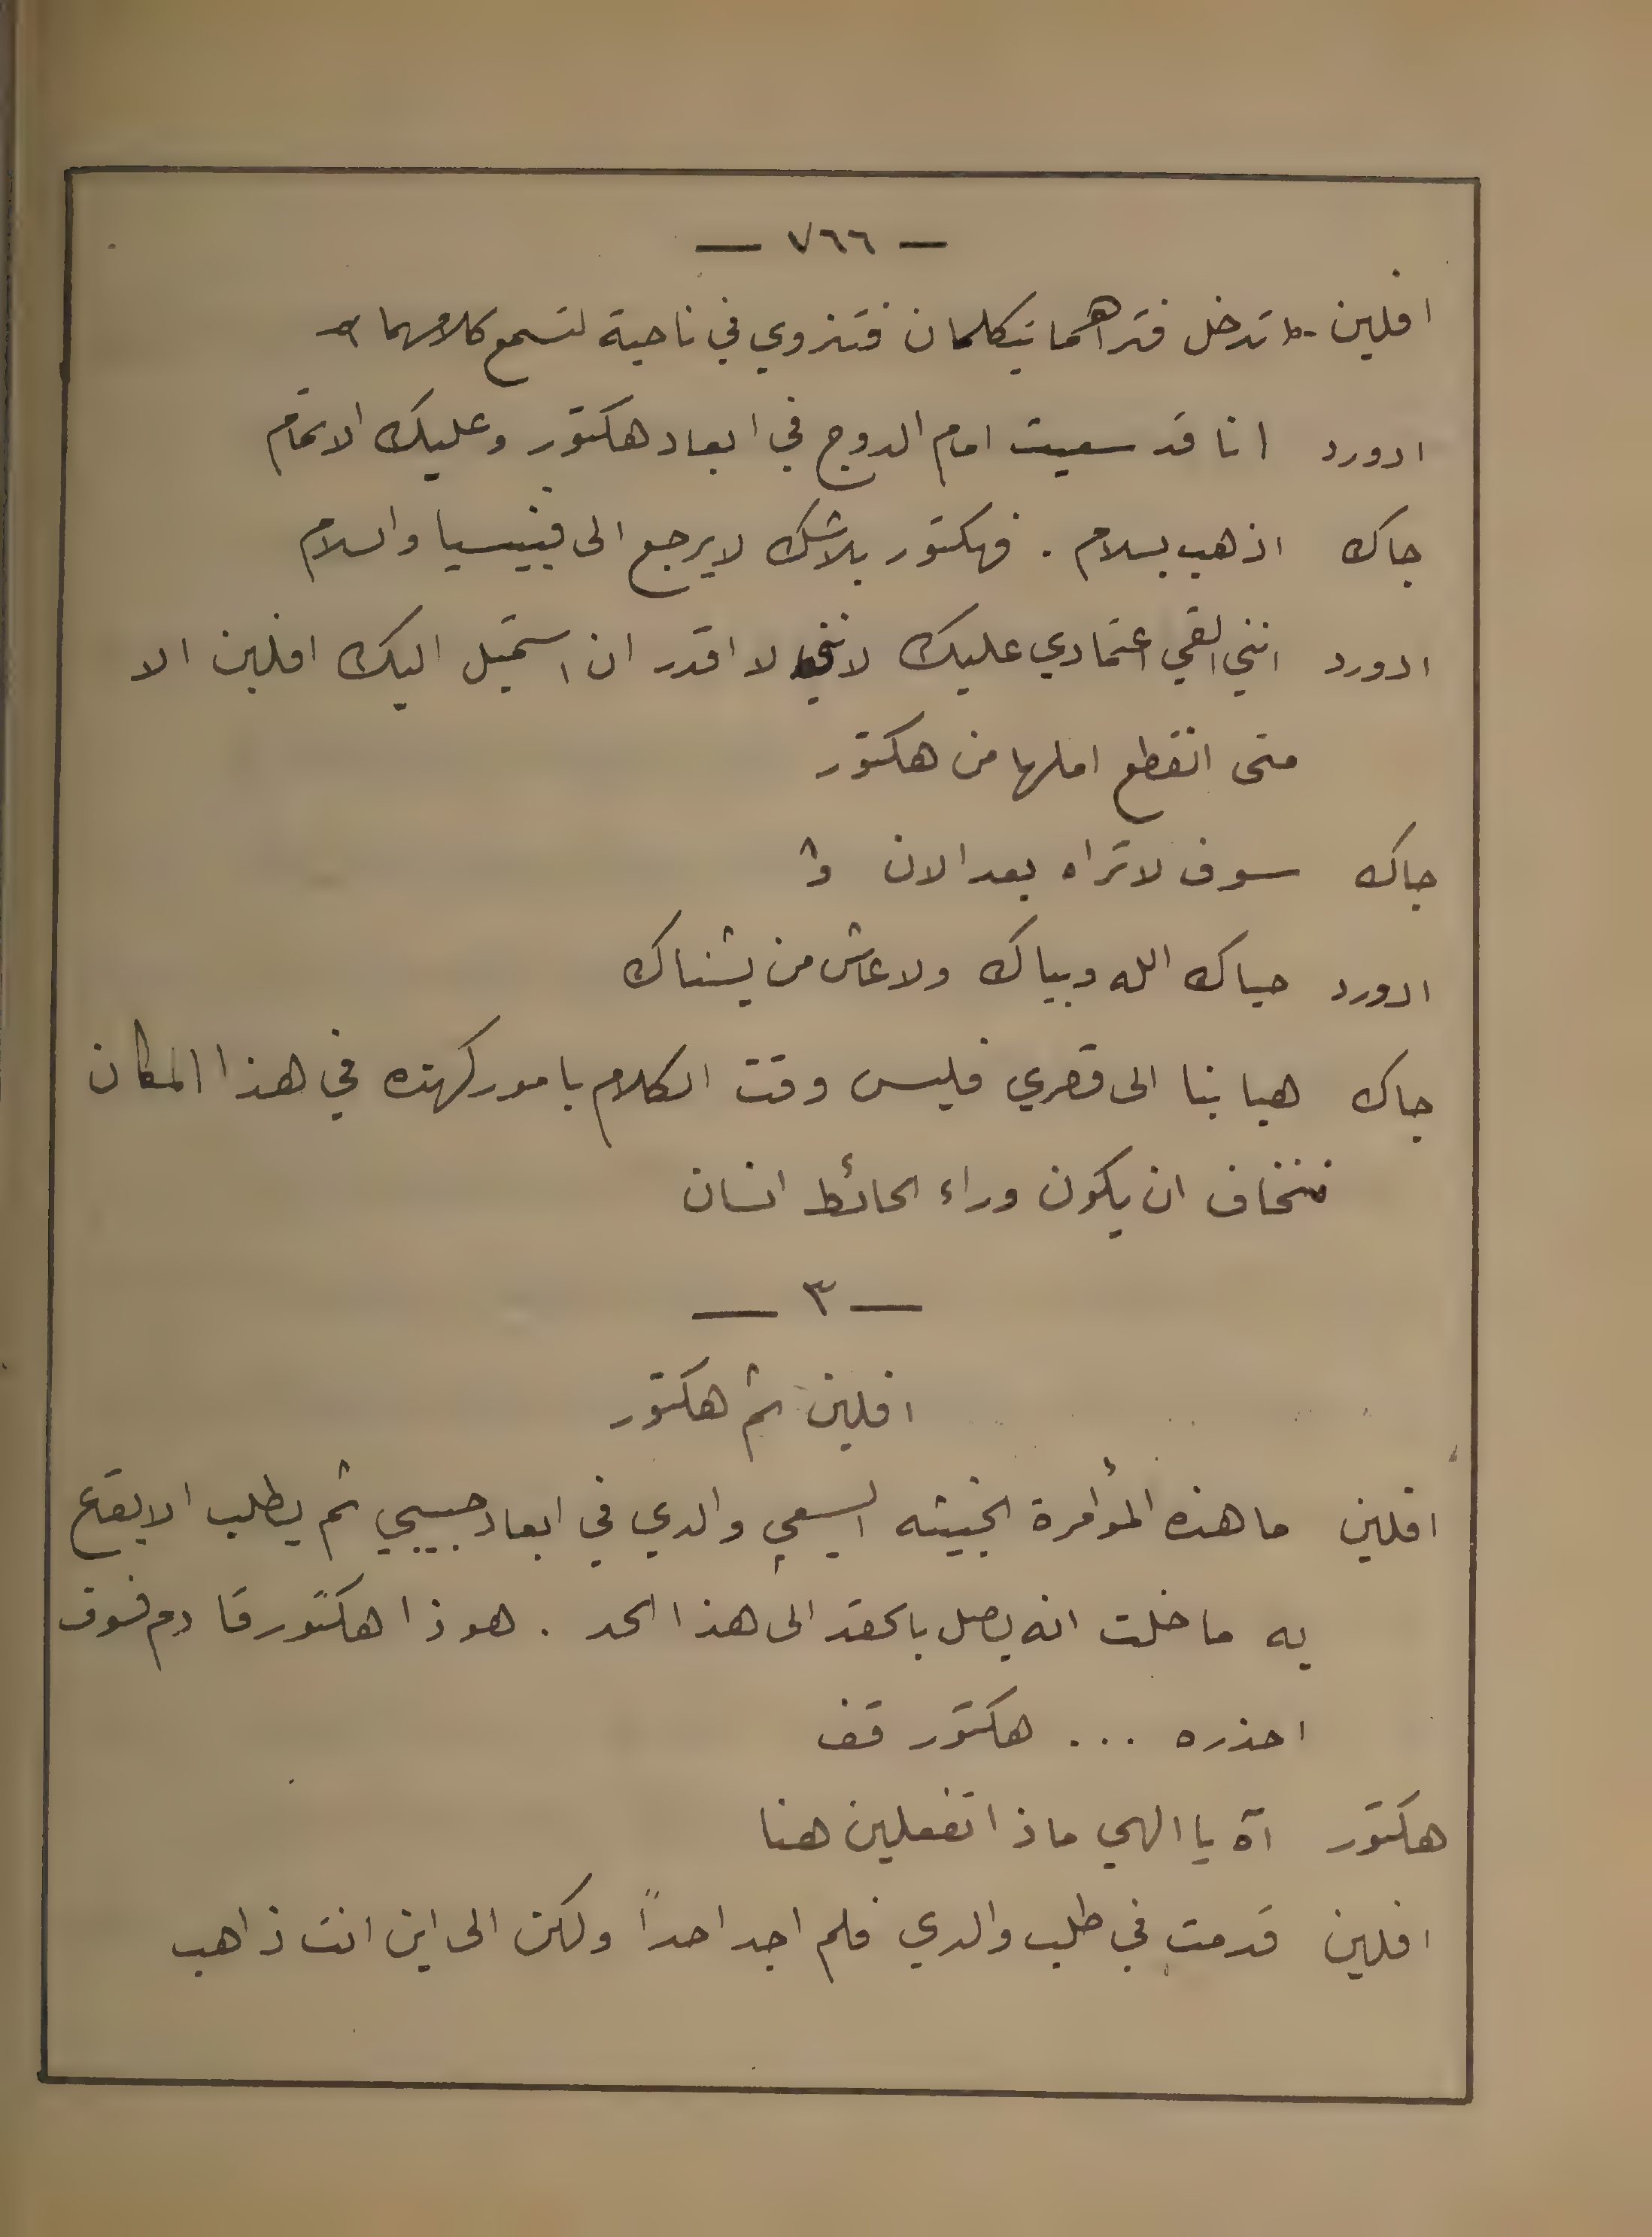 — ٧٦٦ —
افلين - تدخل فتراهما يتكلمان فتنزوي في ناحية لتسمع كلامهما -
ادورد انا قد سعيت امام الدوج في ابعاد هكتور وعليك الاتمام
جاك اذهب بسلام . فهكتور بلا شك لا يرجع الى فينيسيا والسلام
ادورد انني القي اعتمادي عليك لانني لا اقدر ان استميل اليك افلين الا
متى انقطع املها من هكتور
جاك سوف لا تراه بعد الان
ادورد حياك الله وبياك ولا عاش من يشناك
جاك هيا بنا الى قصري فليس وقت الكلام بامور كهذه في هذا المكان
فنخاف ان يكون وراء الحائط انسان
— ٣ —
افلين ثم هكتور
افلين ما هذه المؤامرة الخبيثه ايسعى والدي في ابعاد حبيبي ثم يطلب الايقاع
به ما خلت انه يصل بالحقد الى هذا الحد . هوذا هكتور قادم فسوف
احذره ... هكتور قف
هكتور آه يا الهي ماذا تفعلين هنا
افلين قدمت في طلب والدي فلم اجد احداً ولكن الى اين انت ذاهب